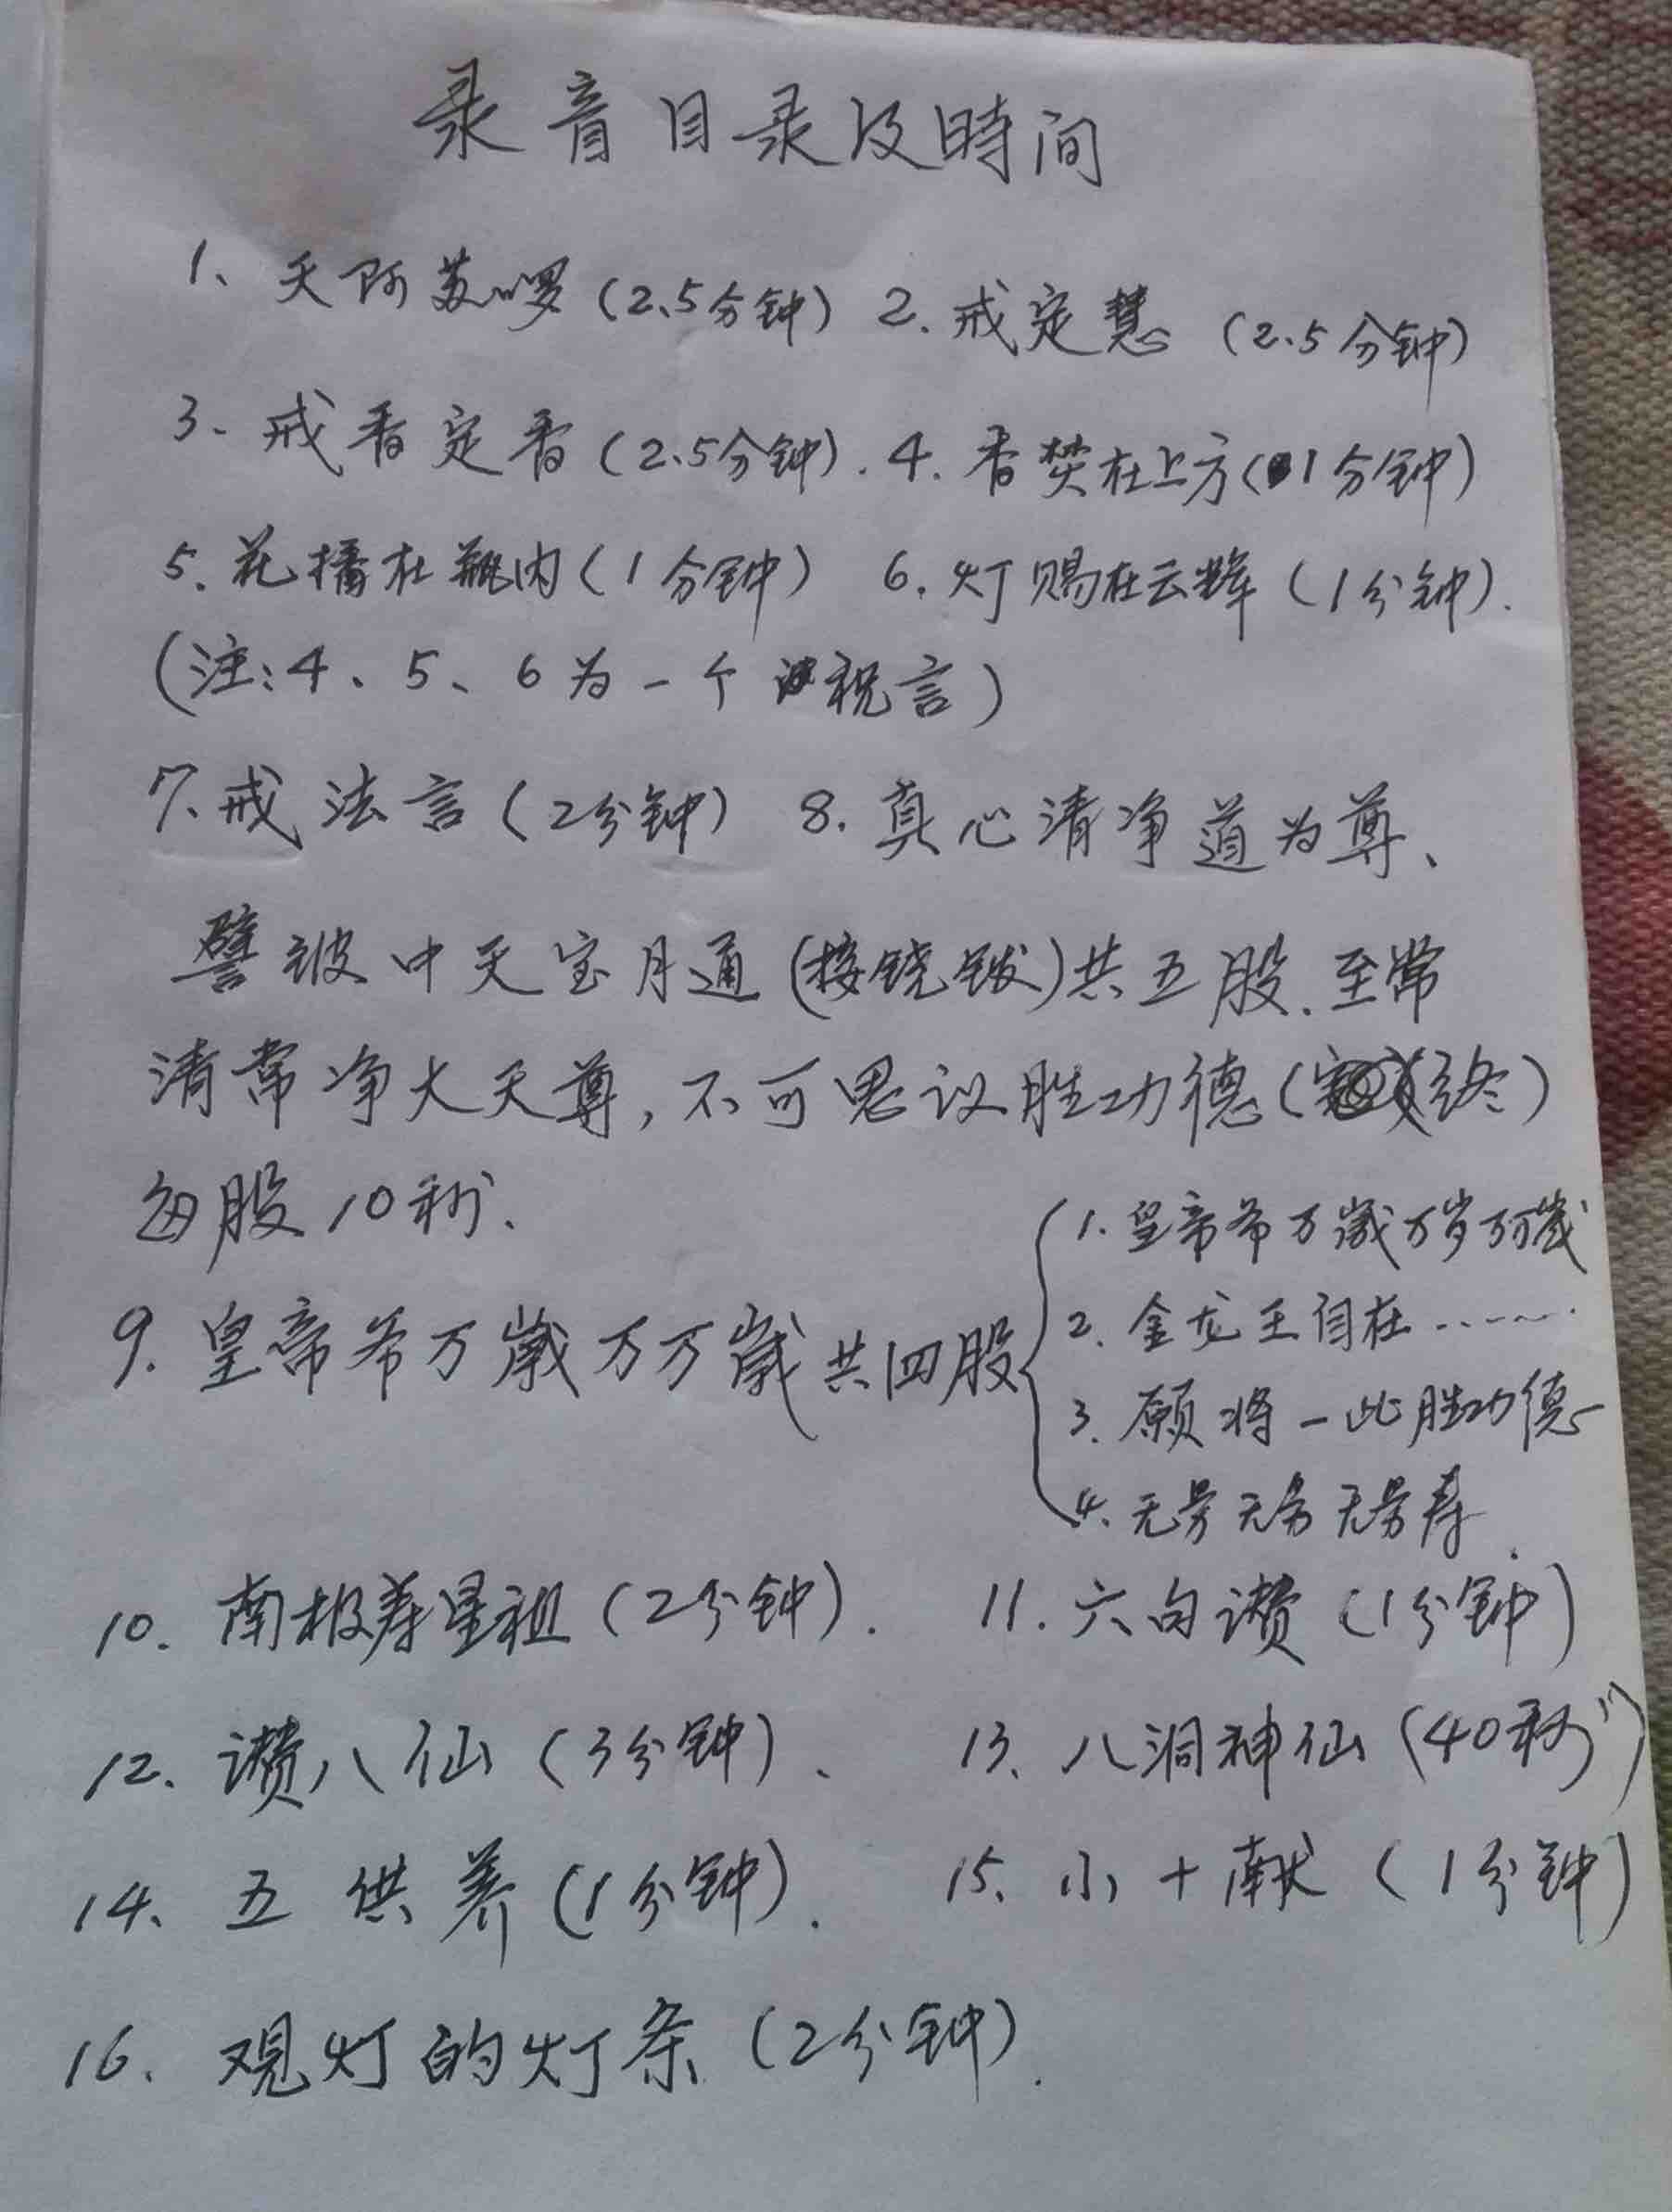 录音目录及時间
1、天阿苏啰(2.5分钟) 2.戒定慧 (2.5分钟)
3、戒香定香(2.5分钟). 4.香焚在上方(1分钟)
5.花播在瓶内(1分钟) 6.灯赐在云辉(1分钟).
(注:4、5、6为一个祝言)
7.戒法言(2分钟) 8.真心清净道为尊、
譬诐中天宝月通(接铙钹)共五股.至常
清常净大天尊,不可思议胜功德(终)
每股10秒.
9.皇帝希万歳万万歳共四股
1.皇帝希万歳万岁万万歳
2.金龙王自在……
3.愿将一此胜功德
4.无号无号无号寿.
10.南极寿星祖(2分钟). 11.六句讃(1分钟)
12.讃八仙(3分钟)、 13、八洞神仙(40秒)
14、五供养(1分钟). 15、小十献(1分钟)
16.观灯的灯条(2分钟).